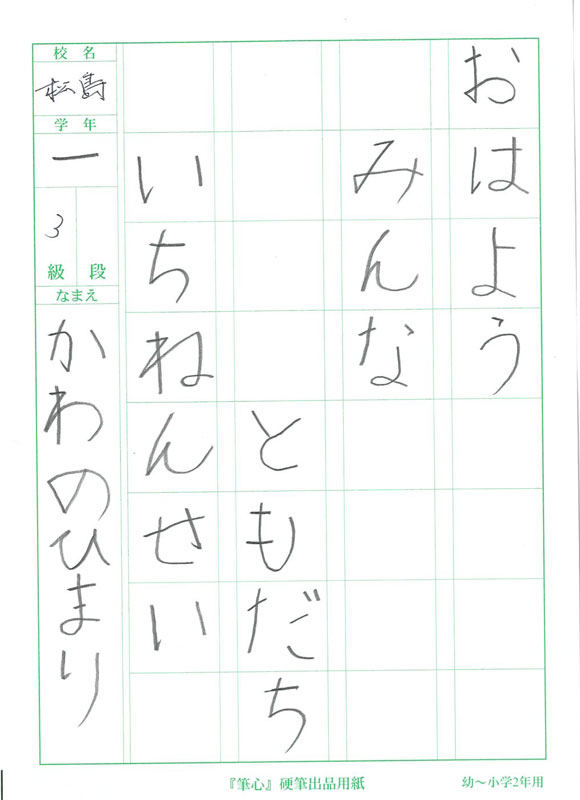 おはよう
みんな
ともだち
いちねんせい
校名
松島
学年
一
3
級 段
なまえ
かわのひまり
『筆心』硬筆出品用紙
幼～小学2年用